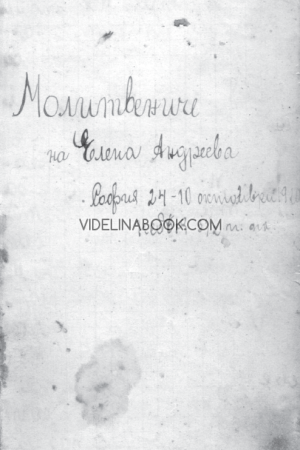 Молитвениче
на Елена Андреева
София 24-10 октомврий
VIDELINABOOK.COM